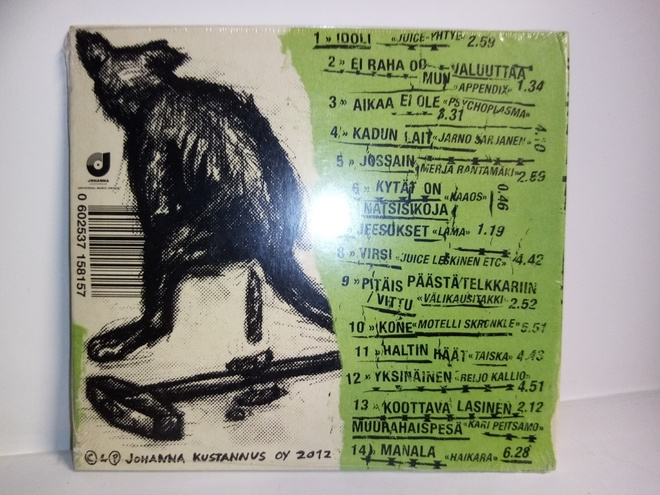 1 » IDOLI «JUICE-YHTYE» 2.59
2 » EI RAHA OO MUN VALUUTTAA «APPENDIX» 1.34
3 » AIKAA EI OLE «PSYCHOPLASMA» 3.31
4 » KADUN LAIT «JARNO SARJANEN» 4.10
5 » JOSSAIN «MERJA RANTAMÄKI» 2.59
6 » KYTÄT ON NATSISIKOJA «KAAOS» 0.46
JEESUKSET «LAMA» 1.19
8 » VIRSI «JUICE LESKINEN ETC» 4.42
9 » PITÄIS PÄÄSTÄ TELKKARIIN
VITTU «VÄLIKAUSITAKKI» 2.52
10 » KONE «MOTELLI SKRONKLE» 5.51
11 » HALTIN HÄÄT «TAISKA» 4.43
12 » YKSINÄINEN «REIJO KALLIO» 4.51
13 » KOOTTAVA LASINEN 2.12
MUURAHAISPESÄ «KARI PEITSAMO»
14 » MANALA «HAIKARA» 6.28
JOHANNA
0 602537 158157
© & ℗ JOHANNA KUSTANNUS OY 2012